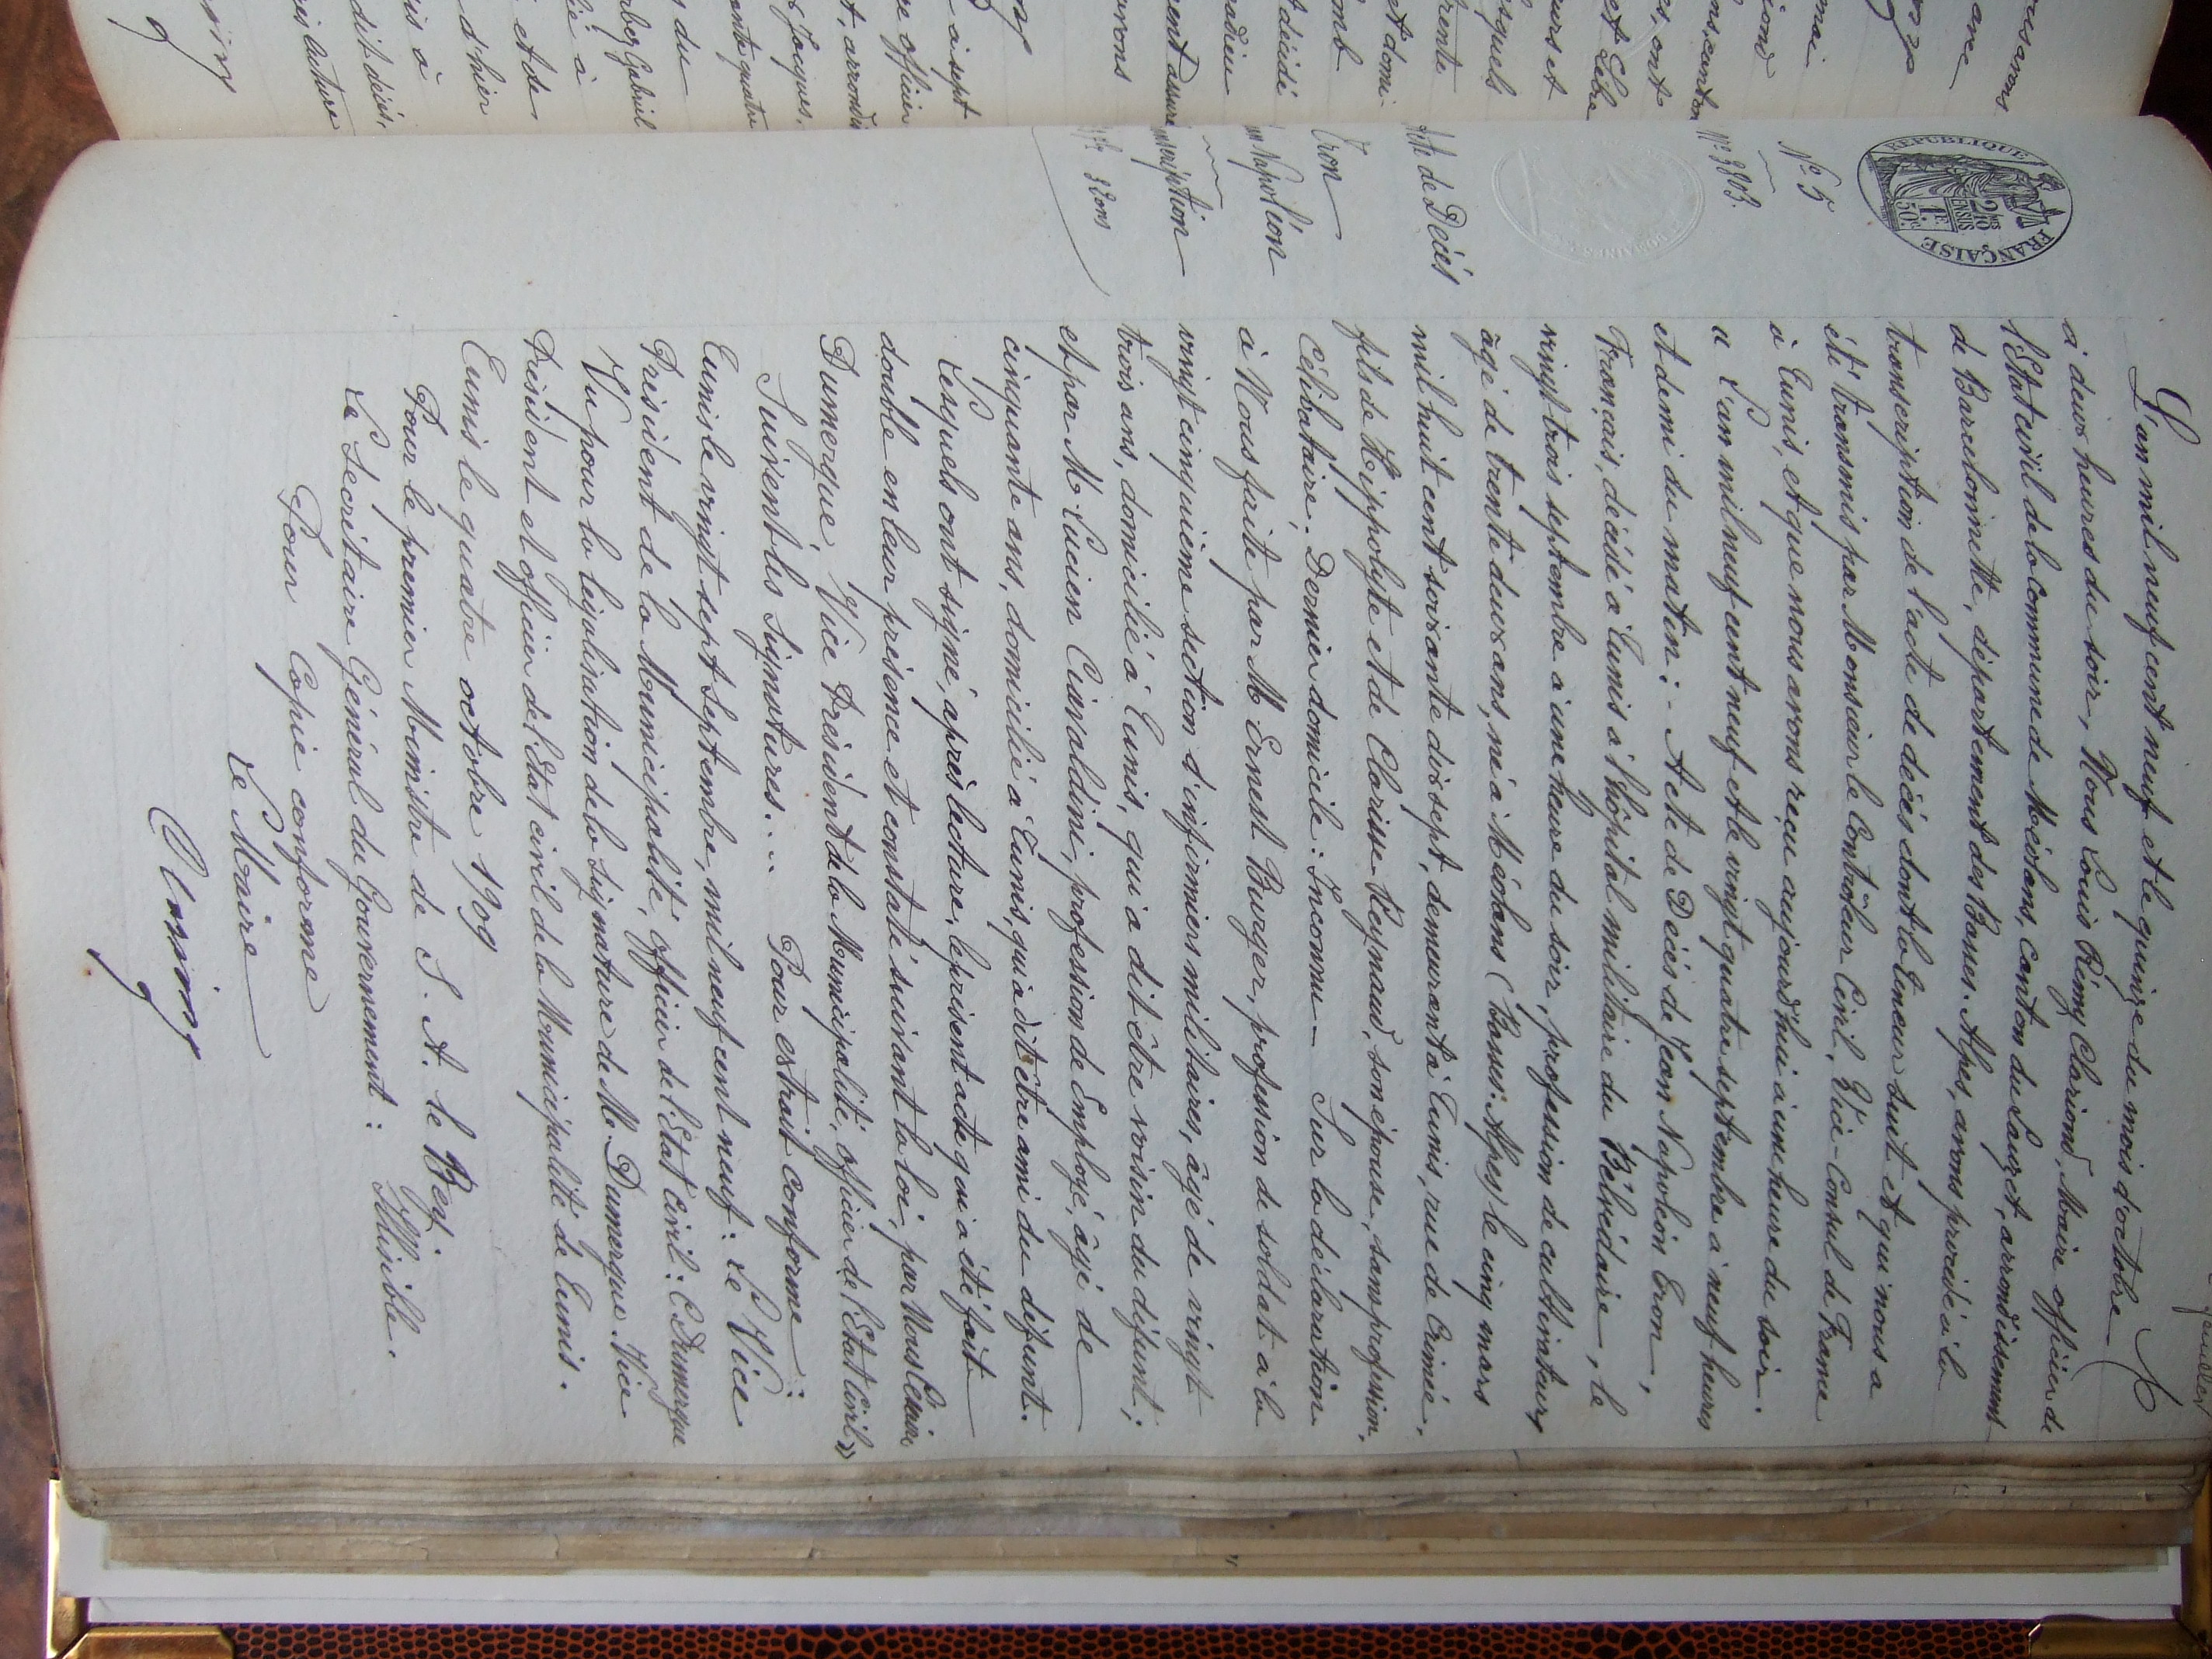 RÉPUBLIQUE FRANÇAISE
2 10mes EN SUS
1F 50c
N° 5
Acte de Décès
Eron
Napoléon
transcription
32 ans
L'an mil neuf cent neuf et le quinze du mois d'octobre
à deux heures du soir, Nous Louis Rémy Clariond, Maire officier de
l'Etat civil de la Commune de Méolans, Canton du Lauzet, arrondissement
de Barcelonnette, département des Basses-Alpes, avons procédé à la
transcription de l'acte de décès dont la teneur suit et qui nous a
été transmis par Monsieur le Contrôleur Civil, Vice-Consul de France
à Tunis, et que nous avons reçu aujourd'hui à une heure du soir.
« L'an mil neuf cent neuf et le vingt quatre septembre à neuf heures
et demi du matin : - Acte de Décès de Jean Napoléon Eron,
Français, décédé à Tunis à l'hôpital militaire du Belvédaire, le
vingt trois septembre à une heure du soir, profession de cultivateur,
âgé de trente deux ans, né à Méolans (Basses-Alpes) le cinq mars
mil huit cent soixante dix sept, demeurant à Tunis, rue de Crimée,
fils de Hippolyte et de Clarisse Reynaud, son épouse, sans profession,
Célibataire. Dernier domicile : Inconnu - Sur la déclaration
à Nous faite par M Ernest Buveger, profession de soldat à la
vingt cinquième section d'infirmiers militaires, âgé de vingt
trois ans, domicilié à Tunis, qui a dit être voisin du défunt ;
et par M Lucien Cianaldini, profession de Employé, âgé de
cinquante ans, domicilié à Tunis, qui a dit être ami du défunt.
Lesquels ont signé, après lecture, le présent acte qui a été fait
double en leur présence et constaté suivant la loi, par Nous
Dumergue, Vice Président de la Municipalité, officier de l'Etat Civil »
Suivent les Signatures... Pour extrait conforme :
Tunis le vingt sept Septembre, mil neuf cent neuf : Le Vice
Président de la Municipalité, officier de l'Etat Civil : E Dumergue
Vu pour la légalisation de la Signature de M. Dumergue. Vice
Président et officier de l'Etat civil de la Municipalité de Tunis.
Tunis le quatre octobre 1909
Pour le premier Ministre de S. A. le Bey.
Le Secrétaire Général du Gouvernement : Illisible.
Pour Copie conforme
Le Maire